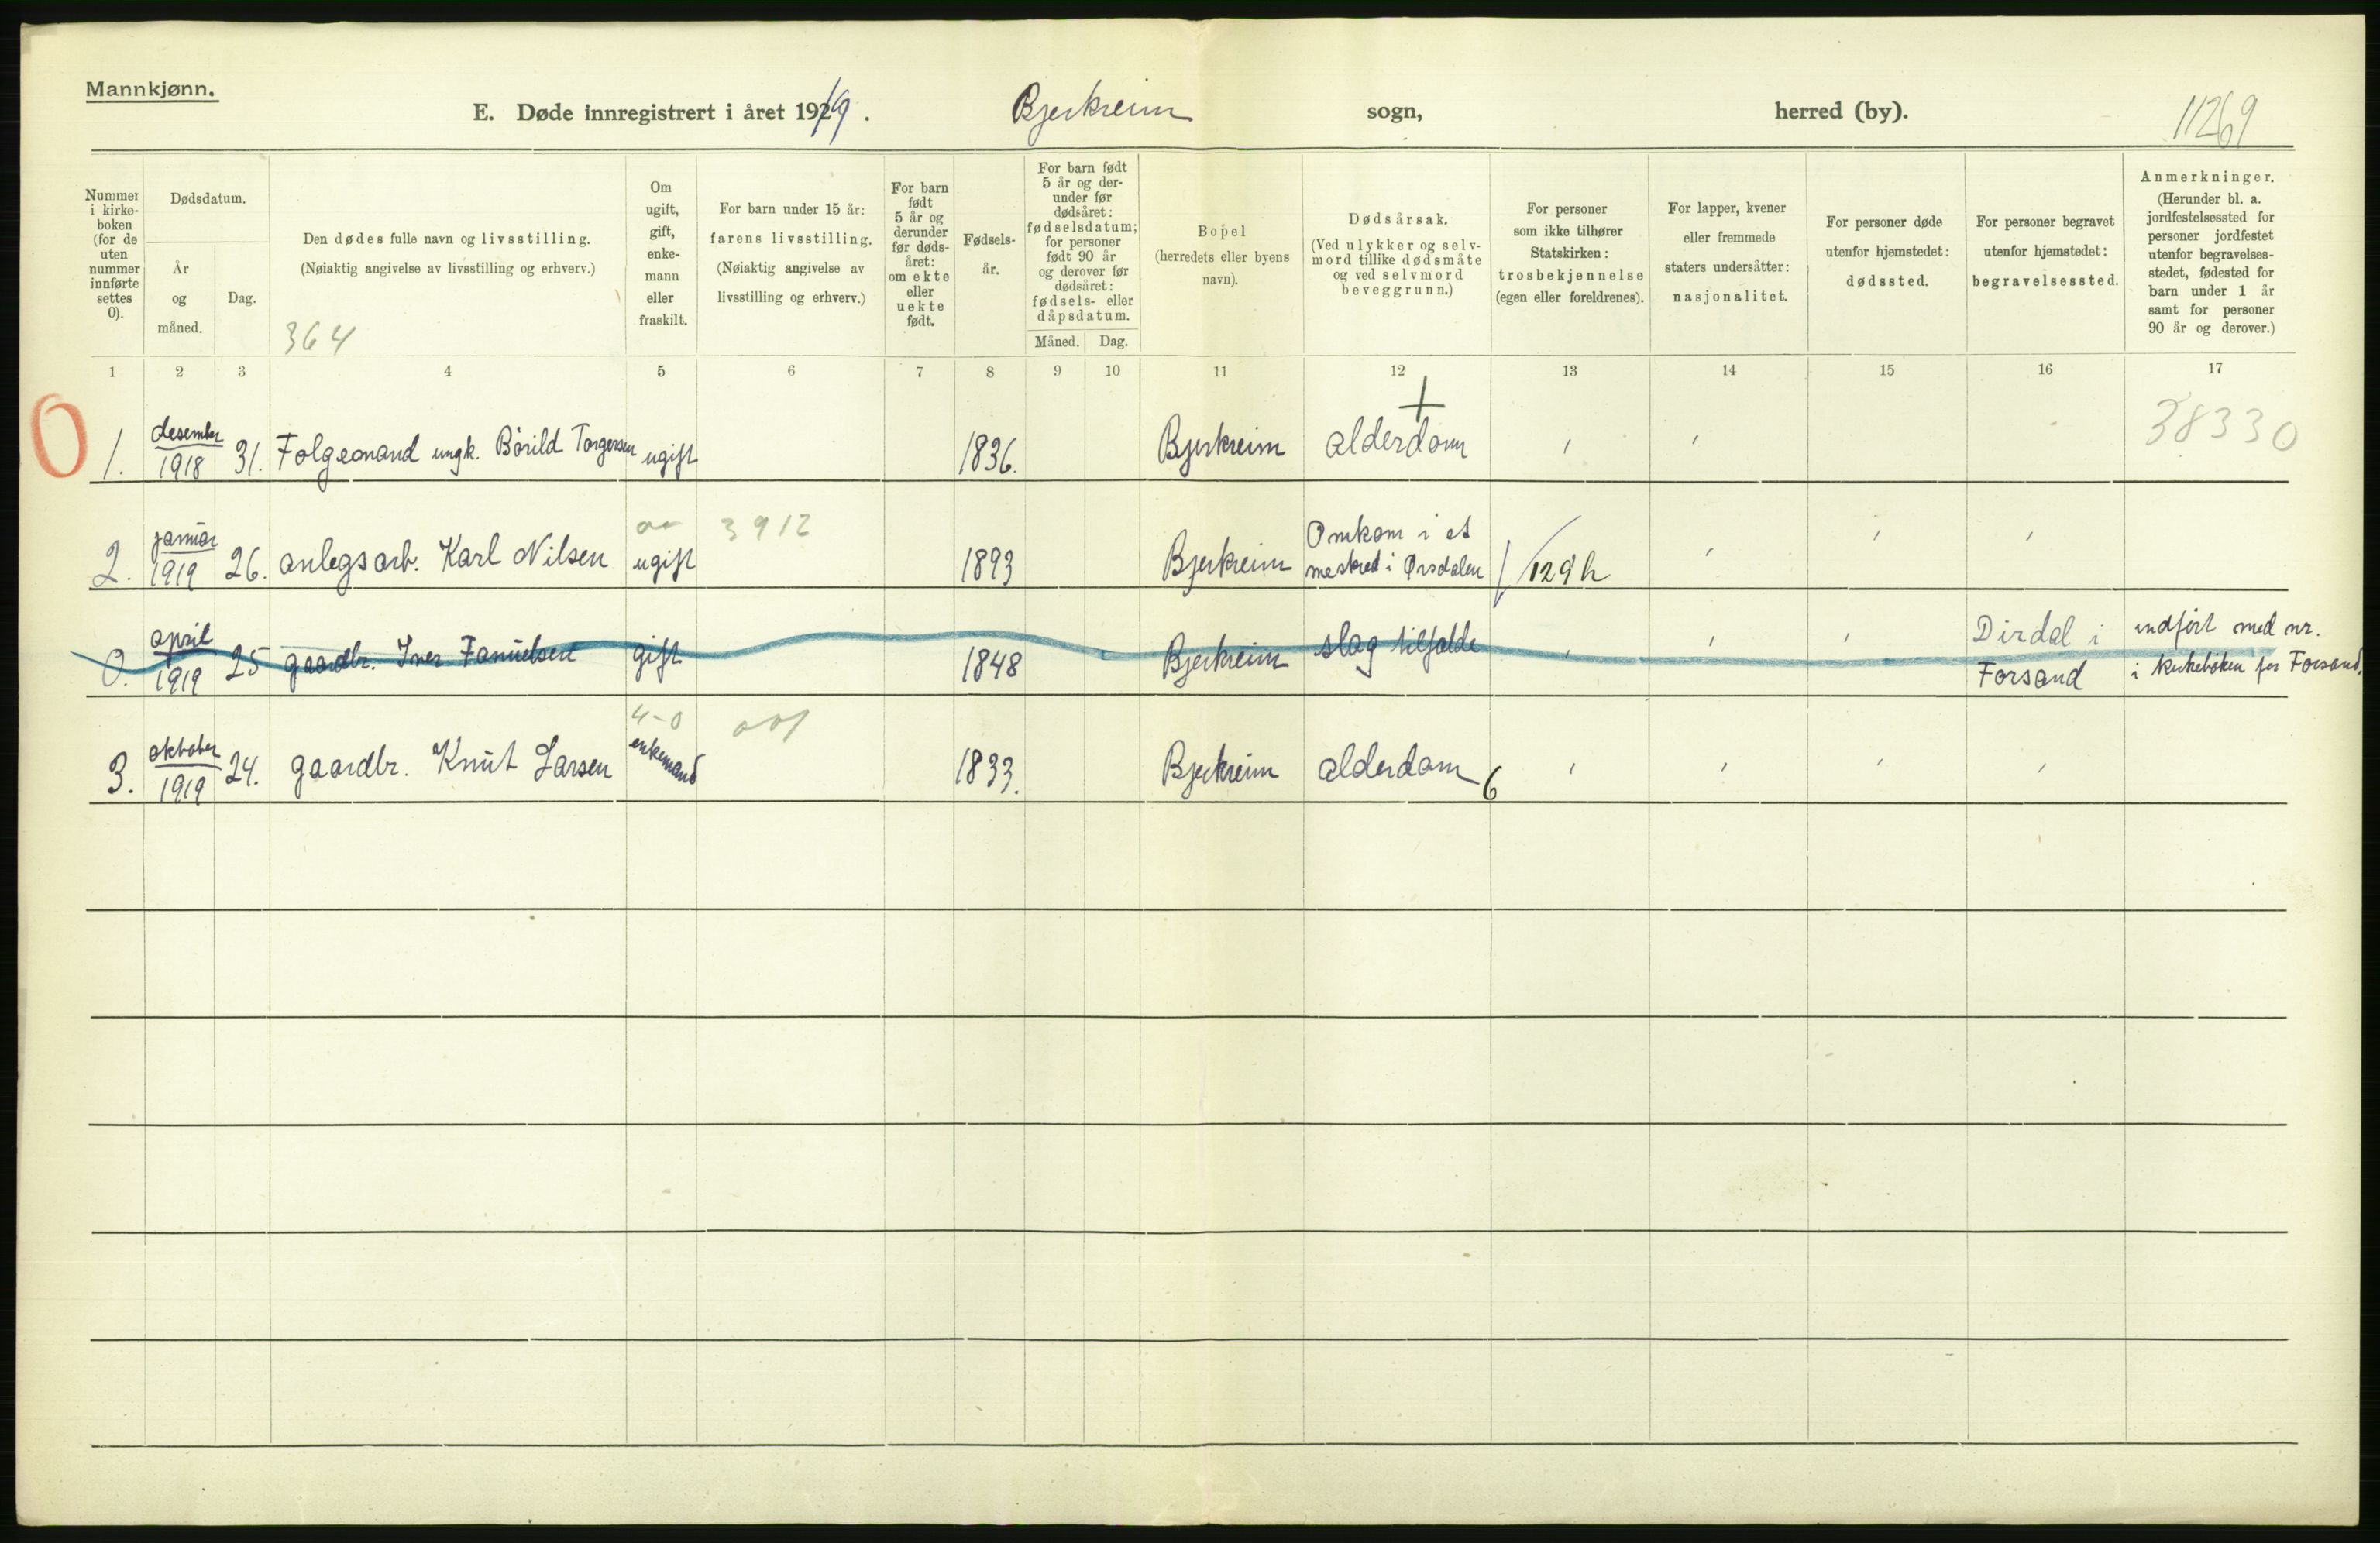 Mannkjønn.
E. Døde innregistrert i året 1919. Bjerkreim sogn, herred (by). 11269
Nummer i kirke-boken (for de uten nummer innførte settes 0).
Dødsdatum.
År og måned.
Dag.
Den dødes fulle navn og livsstilling.
(Nøiaktig angivelse av livsstilling og erhverv.)
364
Om ugift, gift, enke-mann eller fraskilt.
For barn under 15 år:
farens livsstilling.
(Nøiaktig angivelse av
livsstilling og erhverv.)
For barn født 5 år og derunder før døds-året: om ekte eller uekte født.
Fødsels-
år.
For barn født 5 år og der-under før dødsåret: fødselsdatum; for personer født 90 år og derover før dødsåret: fødsels- eller dåpsdatum.
Måned. Dag.
Bopel
(herredets eller byens
navn).
Dødsårsak.
(Ved ulykker og selv-
mord tillike dødsmåte
og ved selvmord
beveggrunn.)
For personer
som ikke tilhører
Statskirken:
trosbekjennelse
(egen eller foreldrenes).
For lapper, kvener
eller fremmede
staters undersåtter:
nasjonalitet.
For personer døde
utenfor hjemstedet:
dødssted.
For personer begravet
utenfor hjemstedet:
begravelsessted.
Anmerkninger.
(Herunder bl. a.
jordfestelsessted for
personer jordfestet
utenfor begravelses-
stedet, fødested for
barn under 1 år
samt for personer
90 år og derover.)
1 2 3 4 5 6 7 8 9 10 11 12 13 14 15 16 17
0
1. desember 1918 31. Folgemand ungk. Bårild Torgersen ugift 1836. Bjerkreim + alderdom 38330
2. januar 1919 26. anlegsarb. Karl Nilsen ugift 3912 1893 Bjerkreim Omkom i et
i Ørsdalen 129 h
0. april 1919 25 gaardbr. Iver Fanuelsen gift 1848 Bjerkreim slag tilfælde Dirdal i Forsand indført med nr.
i kirkeboken for Forsand.
3. oktober 1919 24. gaardbr. Knut Larsen 4-0 enkemand 001 1833. Bjerkreim alderdom 6